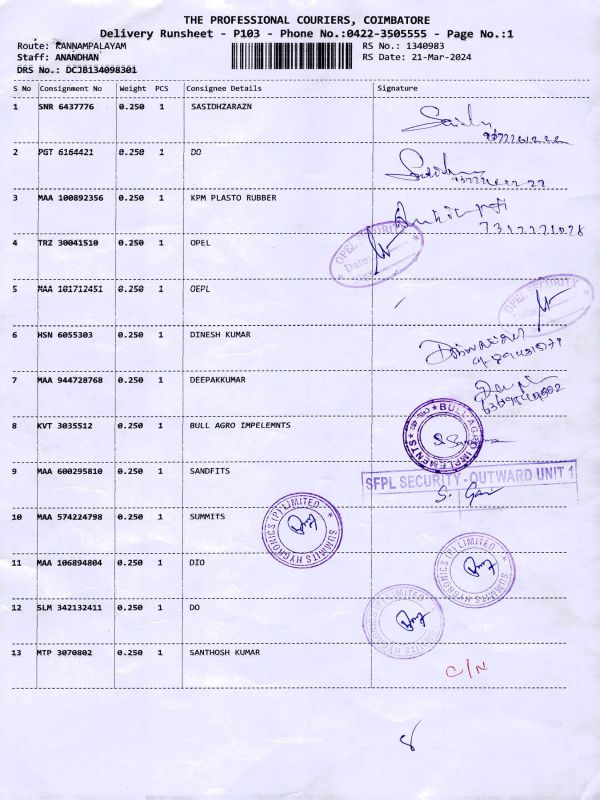 THE PROFESSIONAL COURIERS, COIMBATORE
Delivery Runsheet - P103 - Phone No.:0422-3505555 - Page No.:1
Route: KANNAMPALAYAM RS No.: 1340983
Staff: ANANDHAN RS Date: 21-Mar-2024
DRS No.: DCJB134098301
S No Consignment No Weight PCS Consignee Details Signature
1 SNR 6437776 0.250 1 SASIDHZARAZN
2 PGT 6164421 0.250 1 DO
3 MAA 100892356 0.250 1 KPM PLASTO RUBBER
4 TRZ 30041510 0.250 1 OPEL OPEL SECURITY Date:
5 MAA 101712451 0.250 1 OEPL OPEL SECURITY
6 HSN 6055303 0.250 1 DINESH KUMAR
7 MAA 944728768 0.250 1 DEEPAKKUMAR
8 KVT 3035512 0.250 1 BULL AGRO IMPELEMNTS BULL AGRO IMPLEMENTS
9 MAA 600295810 0.250 1 SANDFITS SFPL SECURITY - OUTWARD UNIT 1
10 MAA 574224798 0.250 1 SUMMITS SUMMITS HYGRONICS (P) LIMITED
11 MAA 106894804 0.250 1 DIO SUMMITS HYGRONICS (P) LIMITED
12 SLM 342132411 0.250 1 DO SUMMITS HYGRONICS (P) LIMITED
13 MTP 3070802 0.250 1 SANTHOSH KUMAR C/N
8